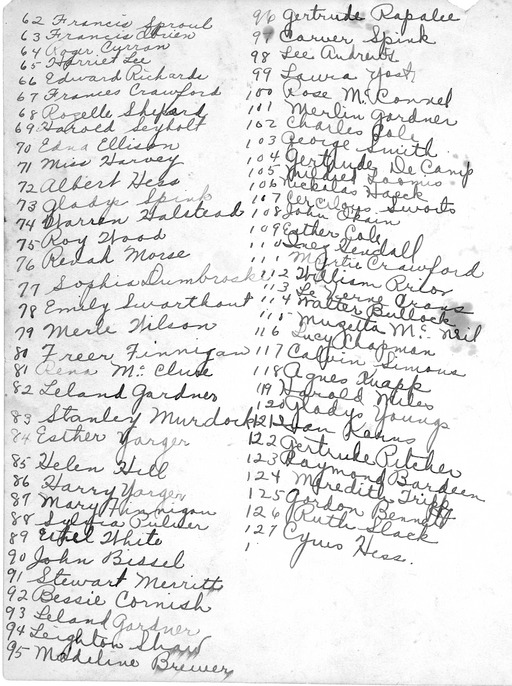 62 Francis Sproul
63 Francis Brien
64 Roger Curran
65 Harriet Lee
66 Edward Richards
67 Frances Crawford
68 Rozelle Shepard
69 Harold Seybolt
70 Edna Ellison
71 Miss Harvey
72 Albert Hess
73 Gladys Spink
74 Warren Halstead
75 Roy Wood
76 Renah Morse
77 Sophia Dumbroske
78 Emily Swarthout
79 Merle Wilson
80 Freer Finnigan
81 Rena Mc Clure
82 Leland Gardner
83 Stanley Murdock
84 Esther Yarger
85 Helen Hill
86 Harry Yarger
87 Mary Finnigan
88 Sylvia Pulver
89 Ethel White
90 John Bissel
91 Stewart Merritt
92 Bessie Cornish
93 Leland Gardner
94 Leighton Shaw
95 Madeline Brewer
96 Gertrude Rapalee
97 Carver Spink
98 Lee Andrews
99 Laura Yost
100 Rose Mc Connel
101 Merlin Gardner
102 Charles Cole
103 George Smith
104 Gertrude De Camp
105 Mildred Loomis
106 Nickalas Haeck
107 Swarts
108 John Thain
109 Esther Cole
110 Inez Kendall
111 Myrtie Crawford
112 William Prior
113 Le Verne Crans
114 Walter Bullock
115 Muzetta Mc Neil
116 Lucy Chapman
117 Calvin Simons
118 Agnes Knapp
119 Harold Miles
120 Gladys Youngs
121 Ian Kanns
122 Gertrude Pitcher
123 Raymond Bardeen
124 Meredith Tripp
125 Gordon Bennett
126 Ruth Slack
127 Cyrus Hess.